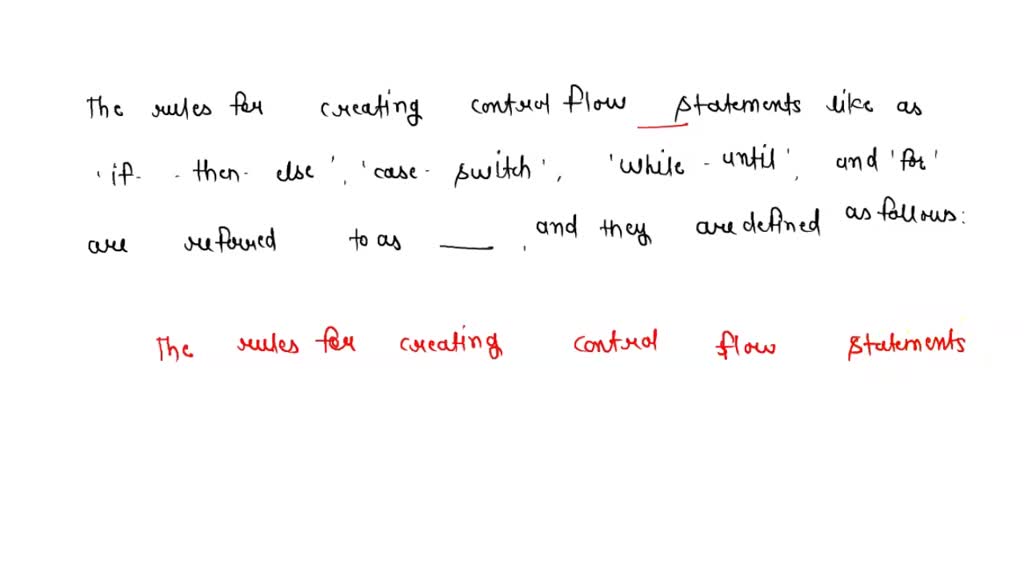 The rules for creating control flow statements like as
'if - then - else', 'case - switch', 'while - until', and 'for'
are referred to as ____, and they are defined as follows:
The rules for creating control flow statements